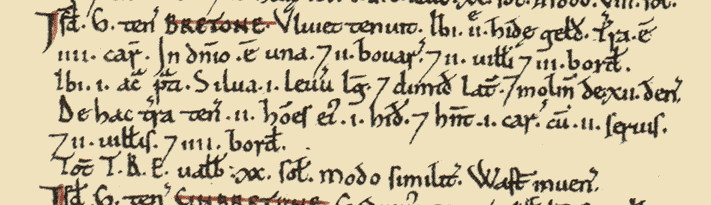 Isd. G. teñ BRETONE. Vluiet tenuit. Ibi. ii. hidę geld̃. Tr̃a. ẽ
iiii. car̃. In dñio. ẽ una. ⁊ ii. bouar̃. ⁊ ii. uilli ⁊ iii. bord̃.
Ibi. i. ac̃ p̃ti. Silua. i. leuũ lg̃. ⁊ dimid̃ lat̃. ⁊ moliñ de xii. deñ.
De hac tr̃a teñ. ii. hões ei. i. hid̃. ⁊ hñt. i. car̃. cũ. ii. seruis.
⁊ ii. uillis. ⁊ iiii. bord̃.
Tot̃ T.R.E. ualb̃. xx. sol̃. modo similit̃. Wast̃ inueñ.
Isd. G. teñ